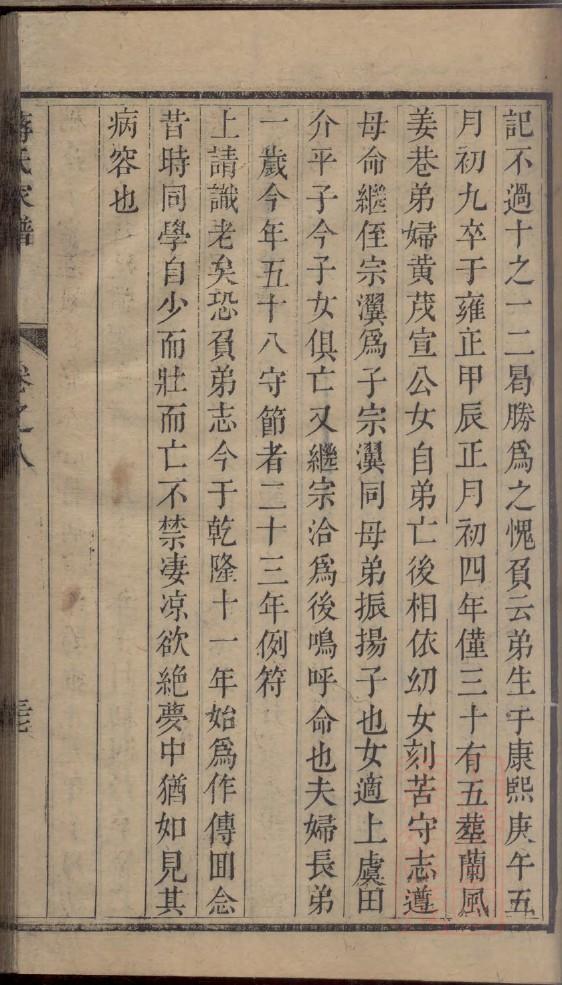 記不過十之一二曷勝爲之愧負云弟生于康熙庚午五
月初九卒于雍正甲辰正月初四年僅三十有五塟蘭風
姜巷弟婦黃茂宣公女自弟亡後相依幼女刻苦守志遵
母命繼侄宗瀷爲子宗瀷同母弟振揚子也女適上虞田
介平子今子女俱亡又繼宗洽爲後鳴呼命也夫婦長弟
一歲今年五十八守節者二十三年例符
上請識老矣恐負弟志今于乾隆十一年始爲作傳囬念
昔時同學自少而壯而亡不禁凄凉欲絶夢中猶如見其
病容也
蔣氏家譜
卷之八